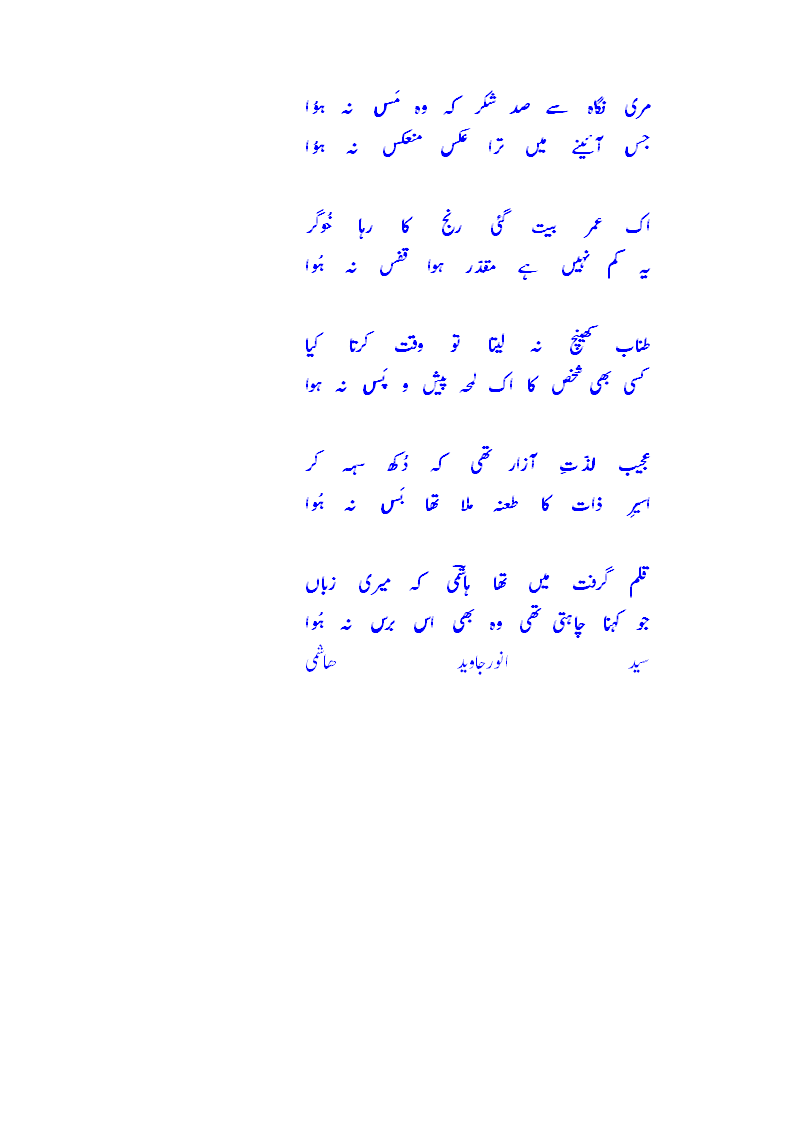 مری نگاہ سے صد شکر کہ وہ مَس نہ ہؤا
جس آئینے میں ترا عکس منعکس نہ ہؤا
اک عمر بیت گئی رنج کا رہا خُوگر
یہ کم نہیں ہے مقدّر ہوا قفس نہ ہُوا
طناب کھینچ نہ لیتا تو وقت کرتا کیا
کسی بھی شخص کا اک لمحہ پیش و پَس نہ ہوا
عجیب لذّتِ آزار تھی کہ دُکھ سہہ کر
اسیرِ ذات کا طعنہ ملا تھا بَس نہ ہُوا
قلم گرفت میں تھا ہاشمؔی کہ میری زباں
جو کہنا چاہتی تھی وہ بھی اس برس نہ ہُوا
سید انورجاوید ھاشمی